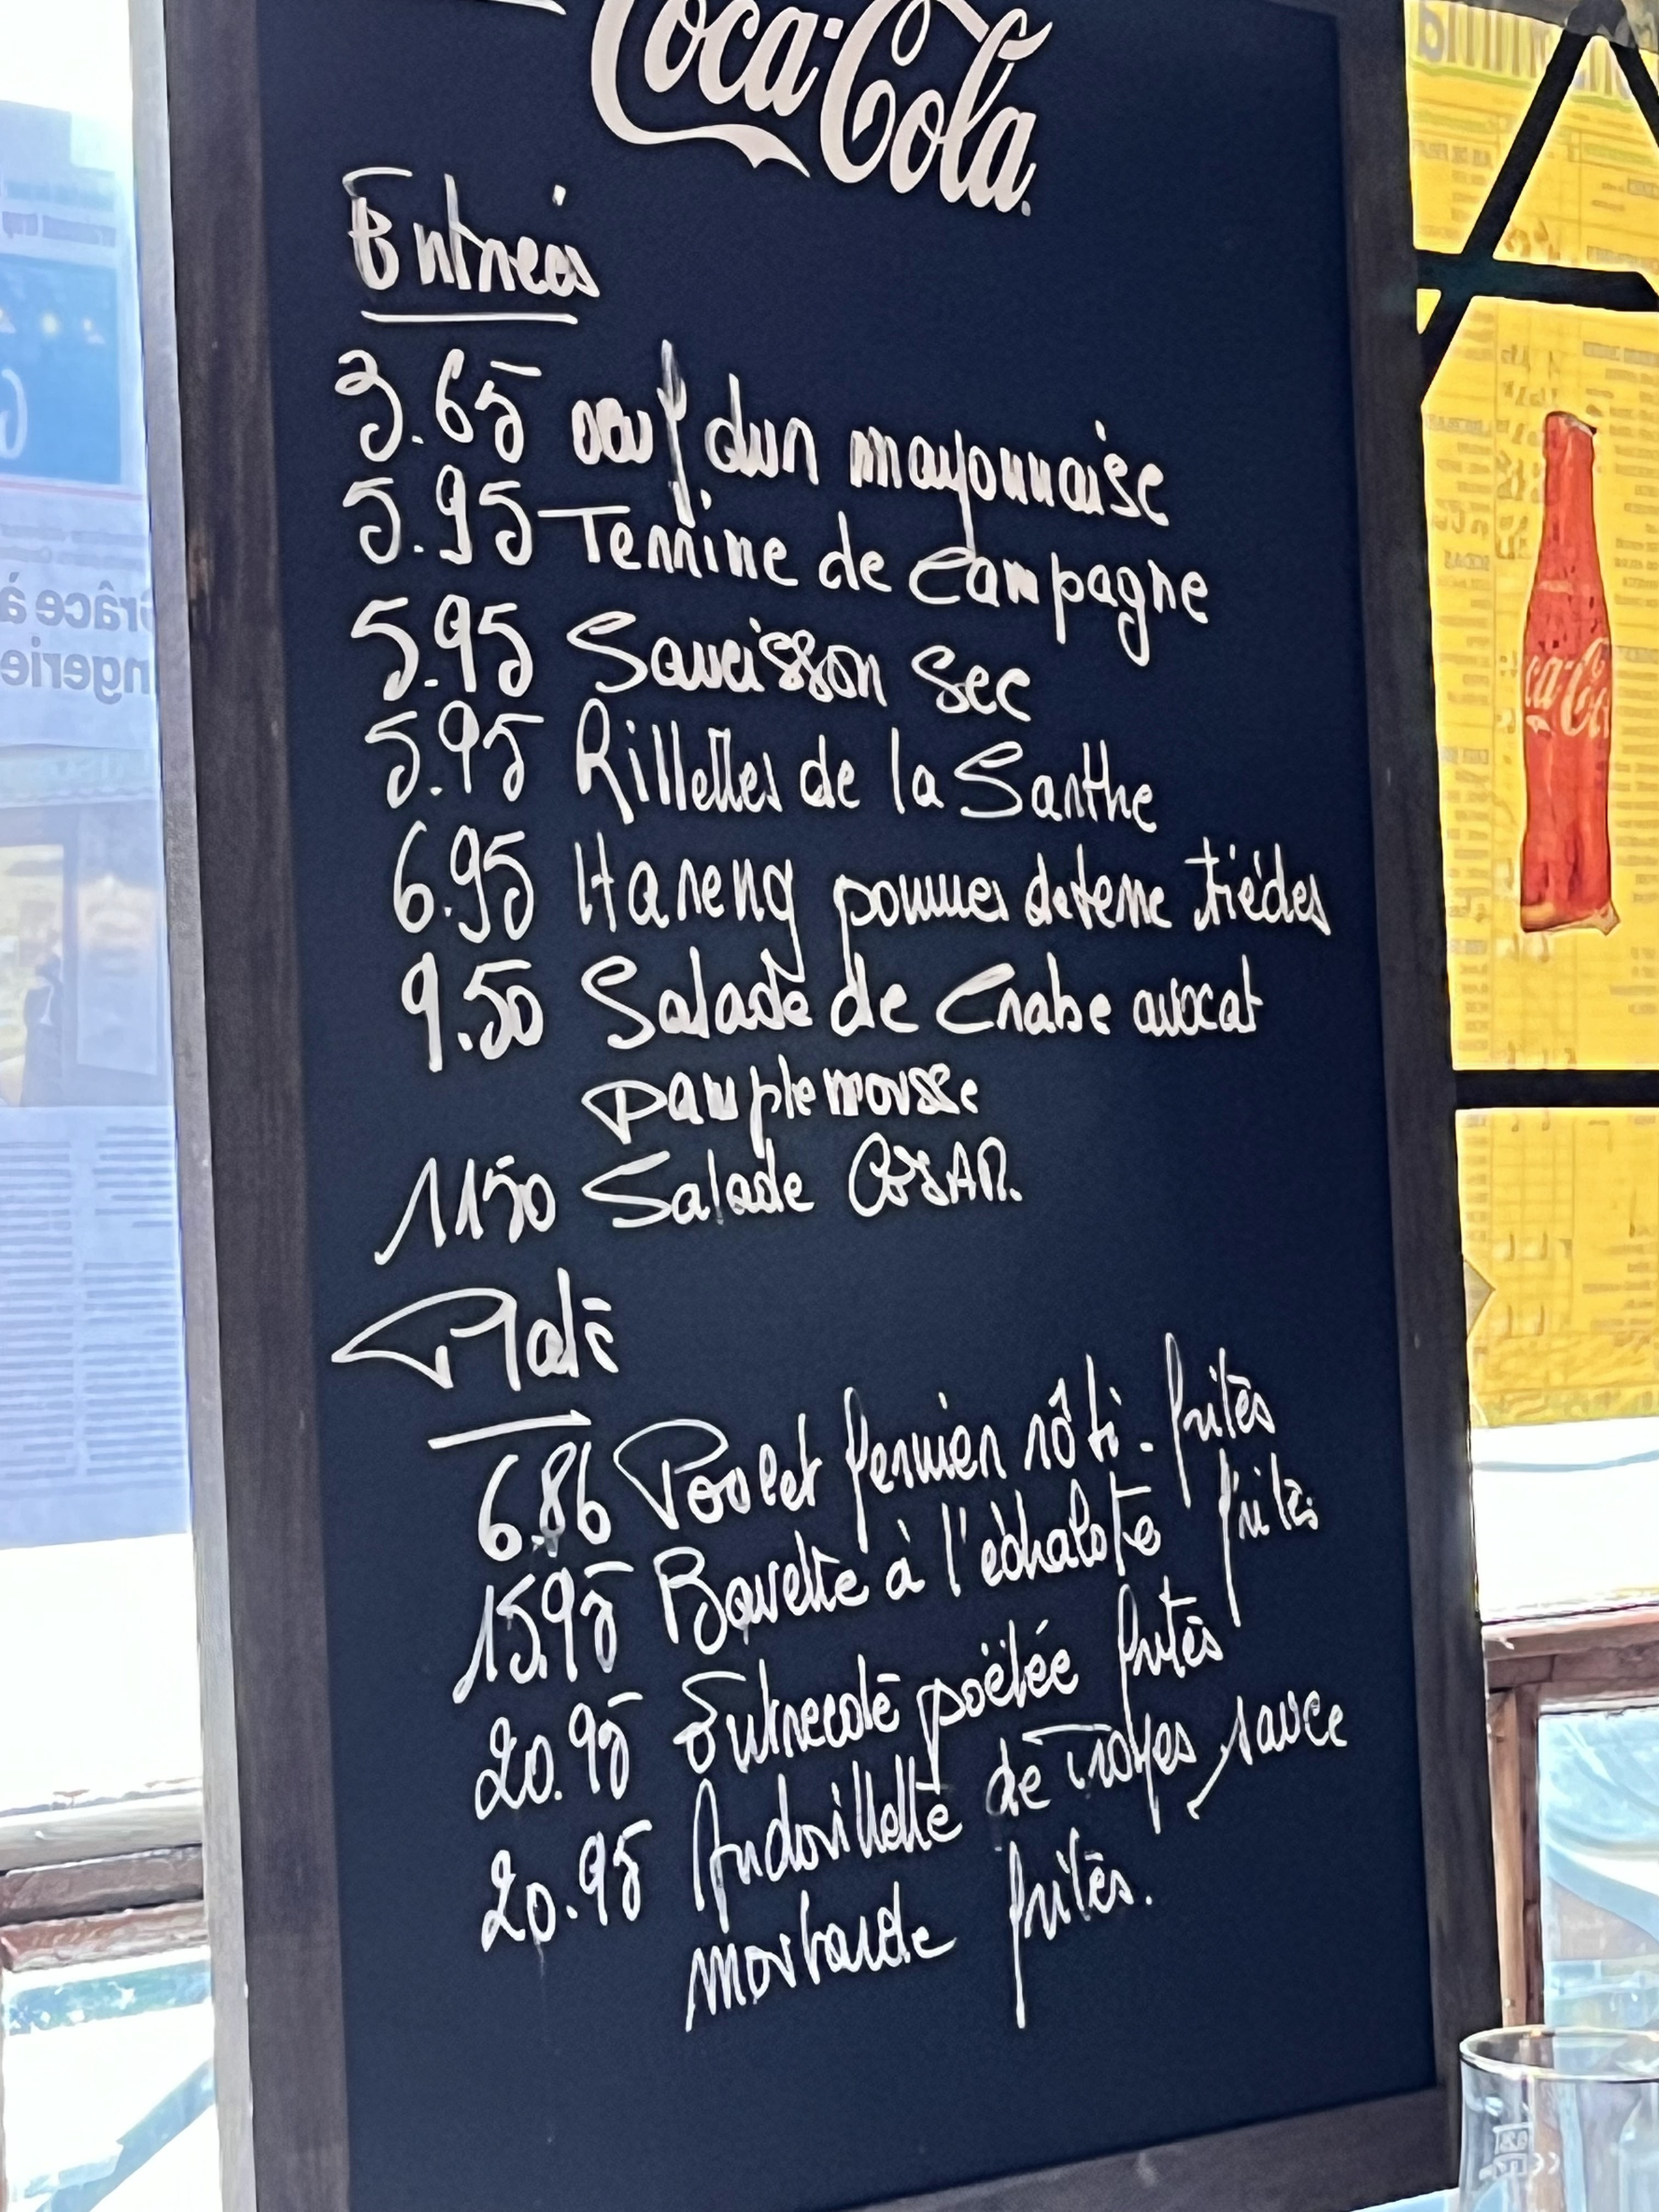 Coca-Cola
Entrées
3.65 oeuf dur mayonnaise
5.95 Terrine de Campagne
5.95 Saucisson Sec
5.95 Rillettes de la Sarthe
6.95 Hareng pommes de terre tièdes
9.50 Salade de Crabe avocat
pamplemousse
1150 Salade CESAR.
Plats
6.86 Poulet fermier rôti - frites
15.95 Bavette à l'échalote frites
20.95 Entrecote poëlée frites
20.95 Andouillette de Troyes, sauce
moutarde frites.
Grâce à
ngerie
ca-Co